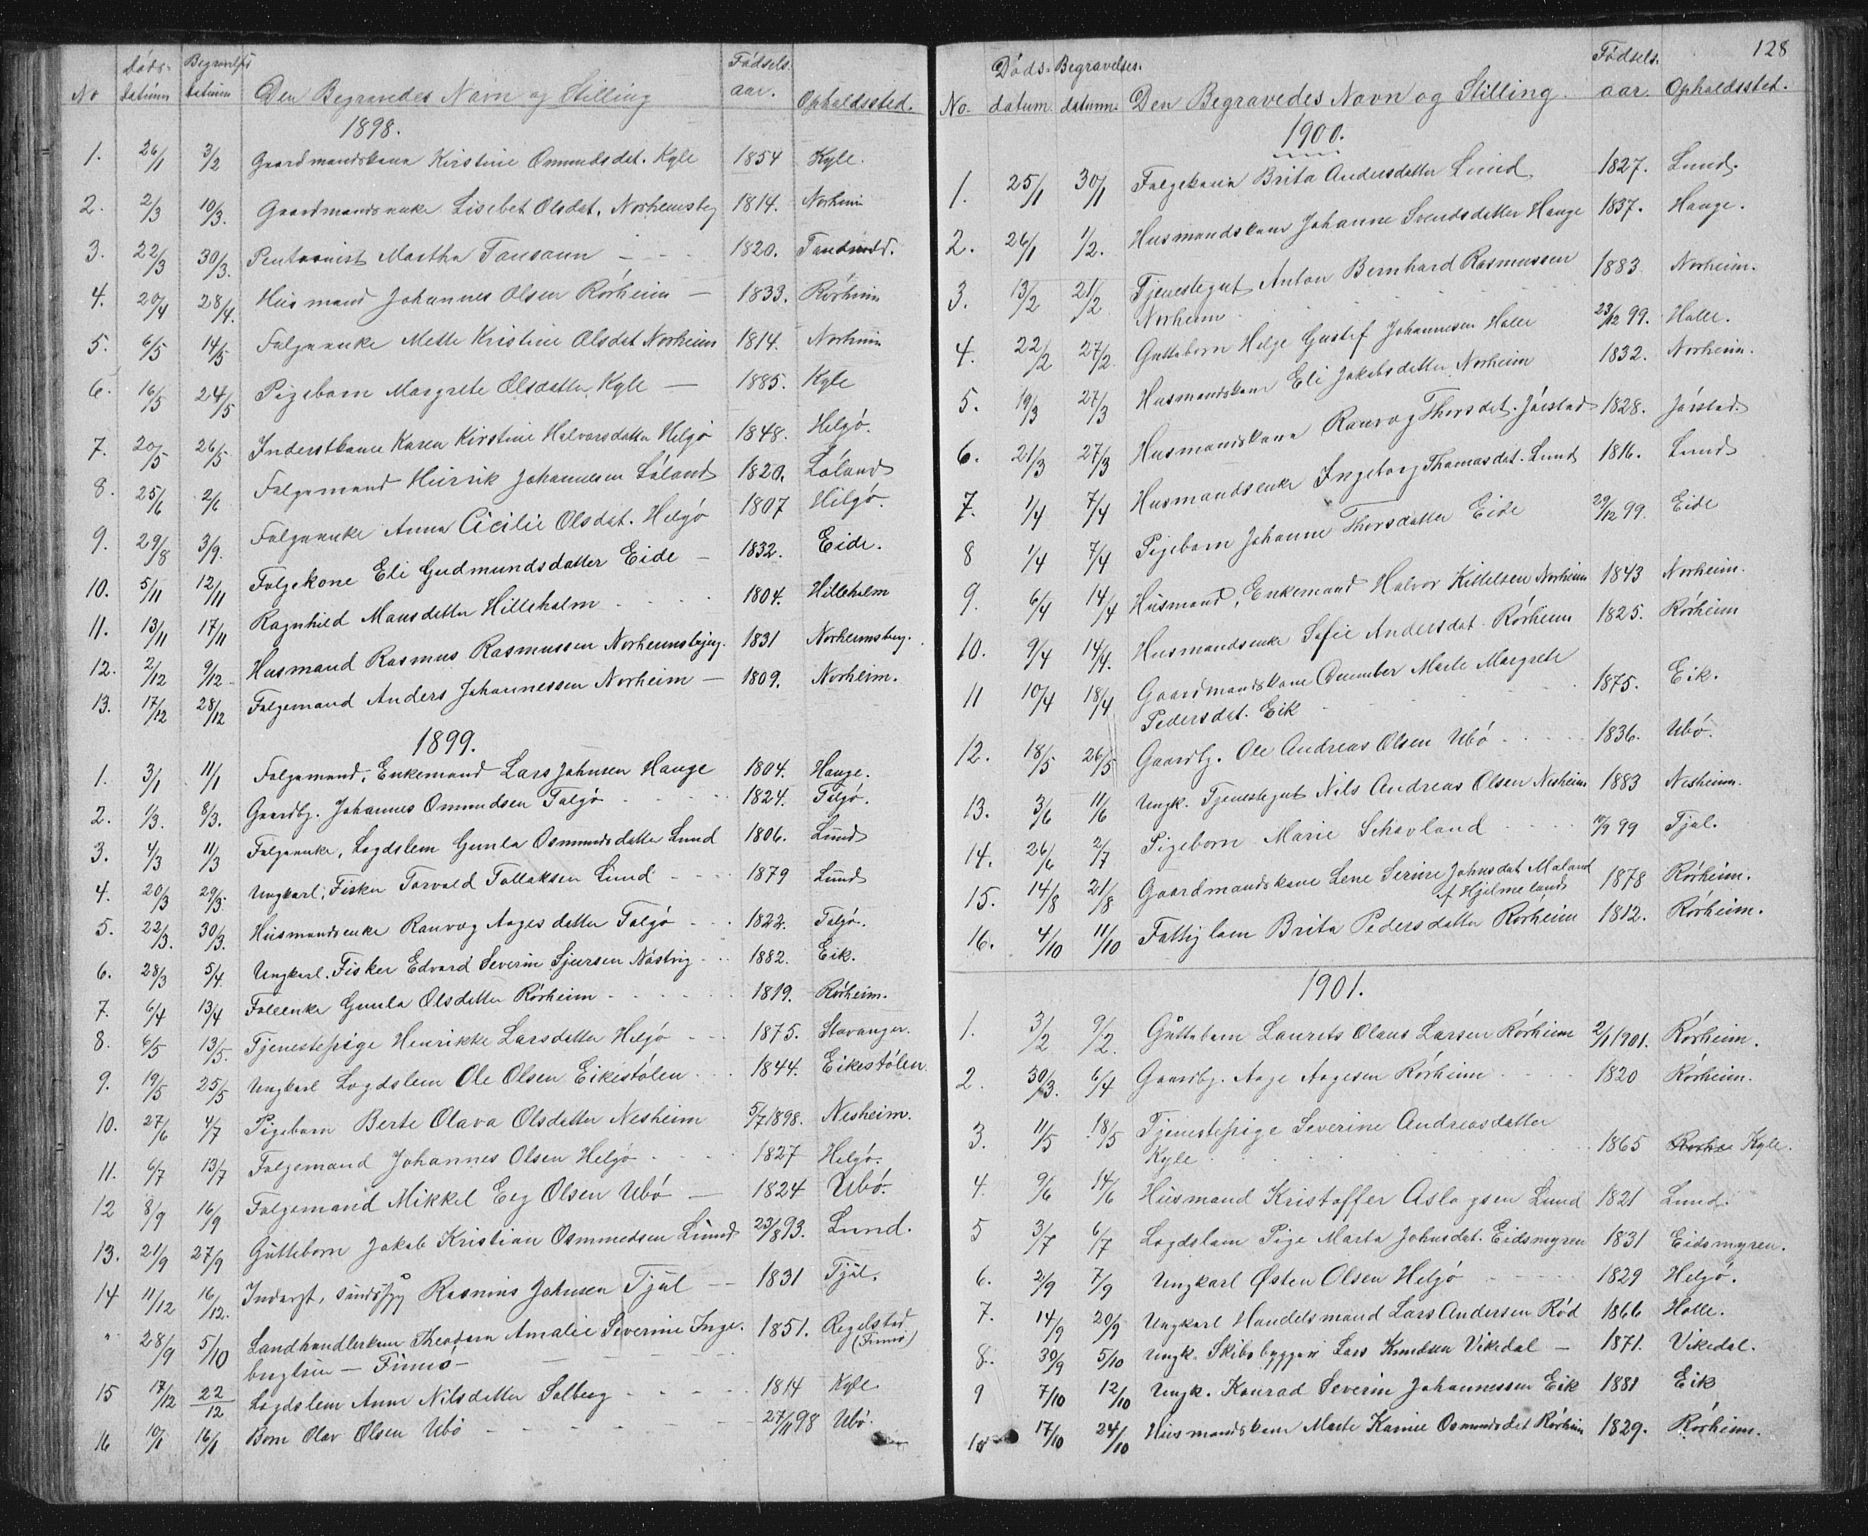 No Døds-datum Begravelses datum Den Begravedes Navn og Stilling Fødsels-aar. Opholdssted.
1898.
1. 26/1 3/2 Gaardmandskone Kirstine Omundsdat. Kyle 1854 Kyle.
2. 2/3 10/3. Gaardmandsenke Lisebet Olsdat. Norheimsbg 1814. Norheim
3. 22/3 30/3. Pentionist Martha Tausann 1820.
4. 20/4 28/4. Husmand Johannes Olsen Rørheim — 1833. Rørheim
5. 6/5 14/5 Folgeenke Mette Kristine Olsdat Norheim 1814. Norheim
6. 16/5 24/5 Pigebarn Margrete Olsdatter Kyle — 1885. Kyle
7. 20/5 26/5 Inderstkone Karen Kirstine Halvorsdatter Helgø 1848. Helgø.
8. 25/6 2/6 Folgemand Henrik Johannesen Løland 1820. Løland
9. 29/8 3/9. Folgeenke Anna Cicilie Olsdat. Helgø 1807 Helgø.
10. 5/11 12/11 Folgekone Eli Gudmundsdatter Eide — 1832. Eide.
11. 13/11 17/11 Ragnhild Mansdatter Hilleholm 1804. Hilleholm
12. 2/12 9/12 Husmand Rasmus Rasmussen Norheimsbjug. 1831 Norheimsberg.
13. 17/12 28/12 Folgemand Anders Johannessen Norheim — 1809. Norheim.
1899.
1. 3/1 11/1 Folgemand, Enkemand Lars Johnsen Hauge 1804. Hauge.
2. 1/3. 8/3. Gaardbg. Johannes Omundsen Talgø 1824. Talgø.
3. 4/3 11/3 Folgeenke, Logdslem Gunla Osmundsdatter Lund 1806. Lund
4. 20/3 29/3. Ungkarl, Fisker Torvald Tollaksen Lund 1879 Lund
5. 22/3. 30/3. Husmandsenke Ranvog Aagesdatter Talgø 1822. Talgø.
6. 28/3 5/4. Ungkarl. Fisker Edvard Severin Sjursen Nåstvig 1882. Eik.
7. 6/4 13/4 Gunla Olsdatter Rørheim 1819. Rørheim.
8. 6/5 13/5. Tjenestepige Henrikke Larsdatter Helgø 1875. Stavanger.
9. 19/5 25/5 Ungkarl Logdslem Ole Olsen Eikestølen 1844. Eikestølen.
10. 27/6 4/7 Pigebarn Berte Olava Olsdatter Nesheim 5/7 1898. Nesheim.
11. 6/7 13/7 Folgemand Johannes Olsen Helgø 1827 Helgø.
12 8/9 16/9 Folgemand Mikkel Eeg Olsen Ubø — 1824 Ubø.
13. 21/9 27/9 Gutteborn Jakob Kristian Osmundsen Lund 23/8 93. Lund.
14 11/12 16/12. Rasmus Johnsen Tjul 1831 Tjul.
" 28/9 5/10 Landhandlerkone Theodora Amalie Severine Inge- 1851. Regelstad
bregtsen — Finnø — (Finnø)
15 17/12 22/12 Logdslem Anne Nilsdatter Solberg 1814 Kyle
16 10/1 16/1 Barn Olav Olsen Ubø 27/11 98 Ubø.
128
No. Døds-datum. Begravelses-datum. Den Begravedes Navn og Stilling. Fødsels-aar. Opholdssted.
1900.
1. 25/1 30/1 Folgekone Brita Andersdatter Lund 1827. Lund.
2. 26/1 1/2. Husmandskone Johanne Svendsdatter Hauge 1837. Hauge.
3. 13/2 21/2 Tjenestegut Anton Bernhard Rasmussen 1883 Norheim.
Norheim
4. 22/2 27/2. Guttebarn Helge Gustef Johannesen Halle 23/12 99. Halle.
5. 19/3 27/3 Husmandskone Eli Jakobsdatter Norheim 1832. Norheim.
6. 21/3 27/3 Husmandskone Ranvog Thorsdat. Jørstad 1828. Jørstad.
7. 1/4 7/4 Husmandsenke Ingeborg Thomasdat. Lund 1816. Lund
8 1/4 7/4 Pigebarn Johanne Thorsdatter Eide 29/12 99. Eide
9. 6/4 14/4 Husmand, Enkemand Halvor Kittelsen Norheim 1843 Norheim.
10. 9/4 14/4. Husmandsenke Sofie Andersdat. Rørheim 1825. Rørheim
11 10/4 18/4 Gaardmandskone Marte Margrete 1875. Eik.
Pedersdat. Eik
12. 18/5 26/5 Gaardbg. Ole Andreas Olsen Ubø 1836. Ubø.
13. 3/6 11/6 Ungk. Tjenestegut Nils Andreas Olsen Nesheim 1883 Nesheim.
14. 26/6 2/7 Pigeborn Marie Schavland 99 Tjul.
15. 14/8 21/8 Gaardmandskone Lene Serine Johnsdat Maland 1878 Rørheim.
af Hjelmeland
16. 4/10 11/10 Fattiglem Brita Pedersdatter Rørheim 1812. Rørheim.
1901.
1. 3/2 9/2. Guttebarn Laurets Olaus Larsen Rørheim 2/1 1901. Rørheim.
2. 30/3. 6/4 Gaardbg. Aage Aagesen Rørheim 1820 Rørheim.
3. 11/5 18/5 Tjenestepige Severine Andreasdatter
Kyle 1865 Kyle.
4. 9/6 14/6 Husmand Kristoffer Aslagsen Lund 1821 Lund.
5 3/7 6/7 Logdslem Pige Marta Johnsdat. Eidsmyren 1831 Eidsmyren.
6. 2/9 7/9 Ungkarl Østen Olsen Helgø 1829 Helgø.
7. 14/9 20/9 Ungkarl Handelsmand Lars Andersen Rød 1866 Halle.
8. 30/9 5/10 Ungk. Skibsbygger Lars Knudsen Vikedal — 1871. Vikedal.
9 7/10 12/10 Ungk. Konrad Severin Johannessen Eik 1881 Eik
10 17/10 24/10 Husmandskone Marte Karine Osmundsdet Rørheim 1829. Rørheim.